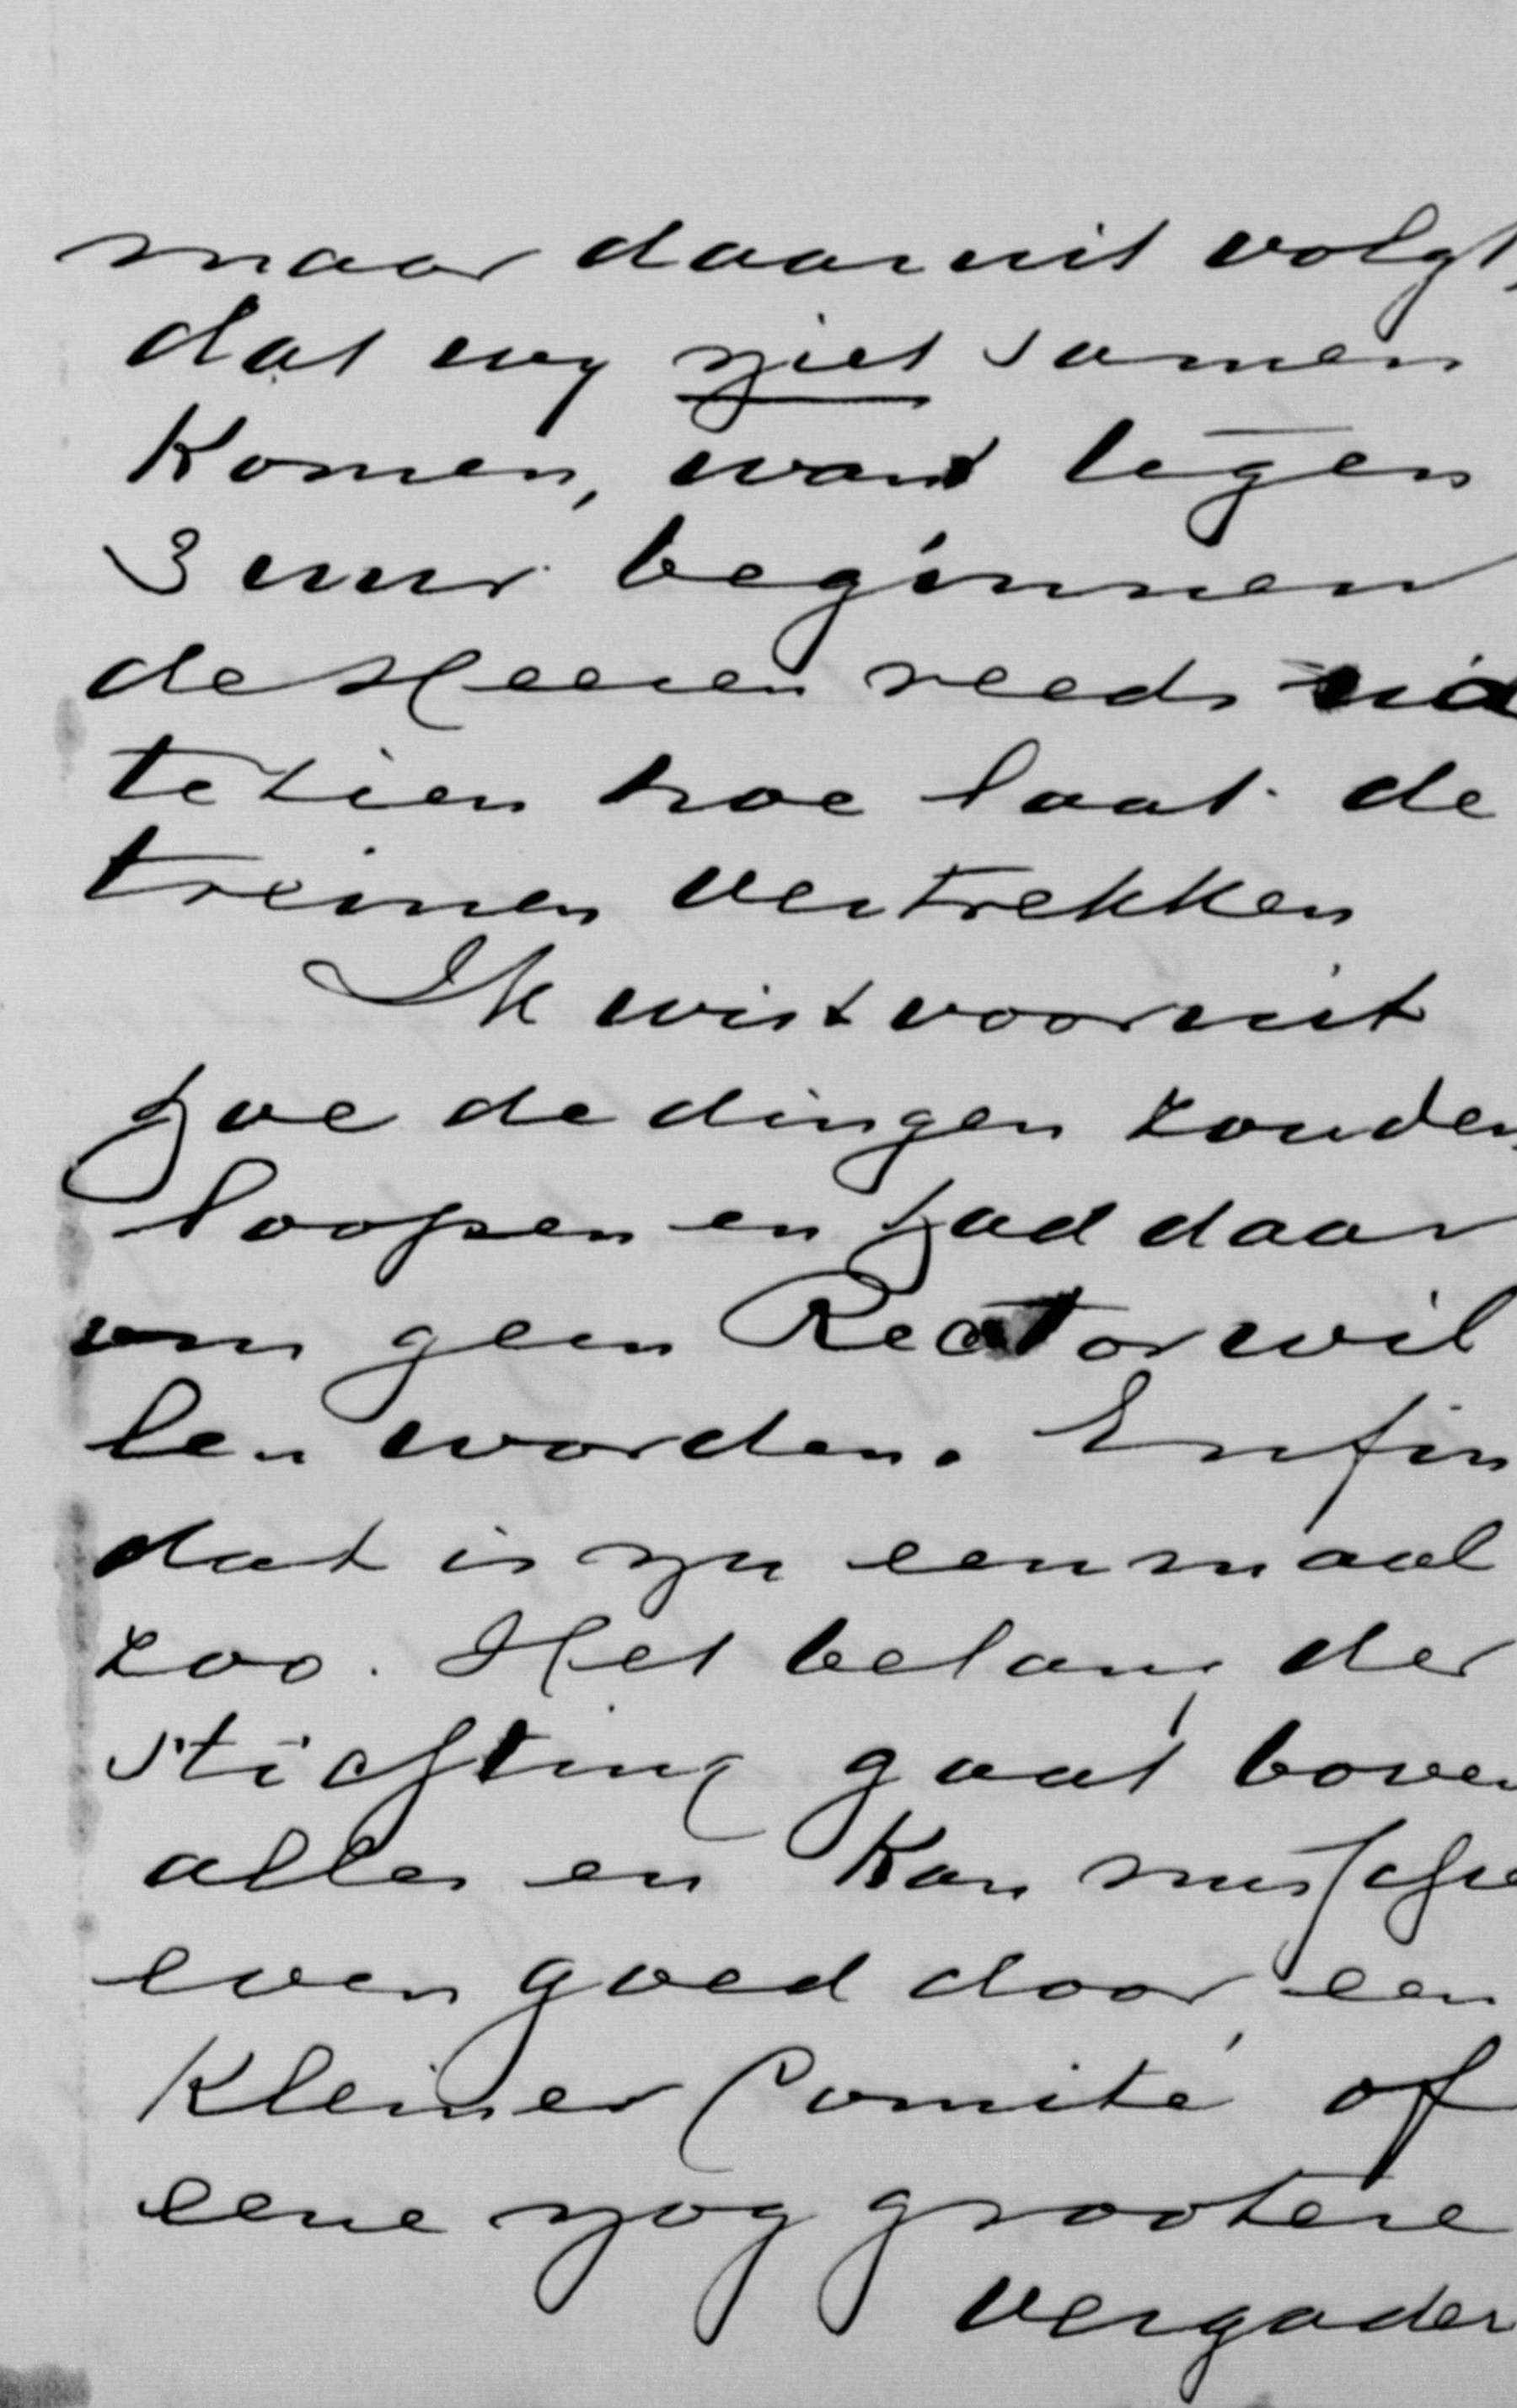 maar daaruit volgt,
dat wy niet samen
komen, want tegen
3 uur beginnen
de Heeren reeds
te zien hoe laat de
treinen vertrekken
Ik wist vooruit
hoe de dingen zouden
loopen en had daar
om geen Rector wil
len worden. Enfin
dat is nu eenmaal
zoo. Het belang der
stichting gaat boven
alles en kan misschie
even goed door een
kleiner Comité of
eene nog grootere
vergader